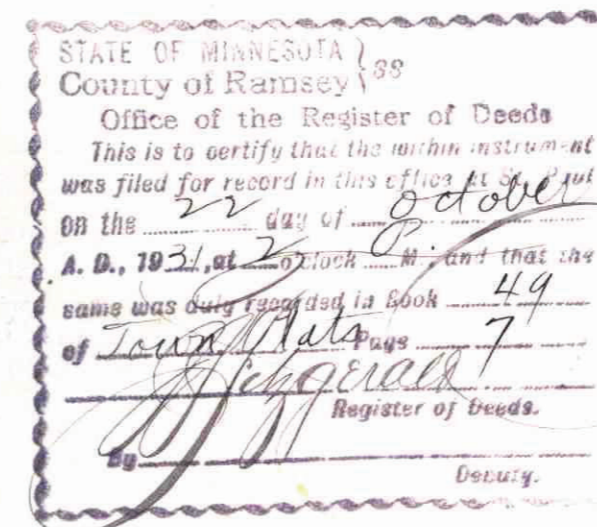 STATE OF MINNESOTA }
County of Ramsey } SS
Office of the Register of Deeds
This is to certify that the within instrument
was filed for record in this office at St. Paul
on the 22 day of October
A. D., 1931, at 2 o'clock M., and that the
same was duly recorded in Book 49
of Town Plats Page 7
Fitzgerald
Register of Deeds.
By
Deputy.